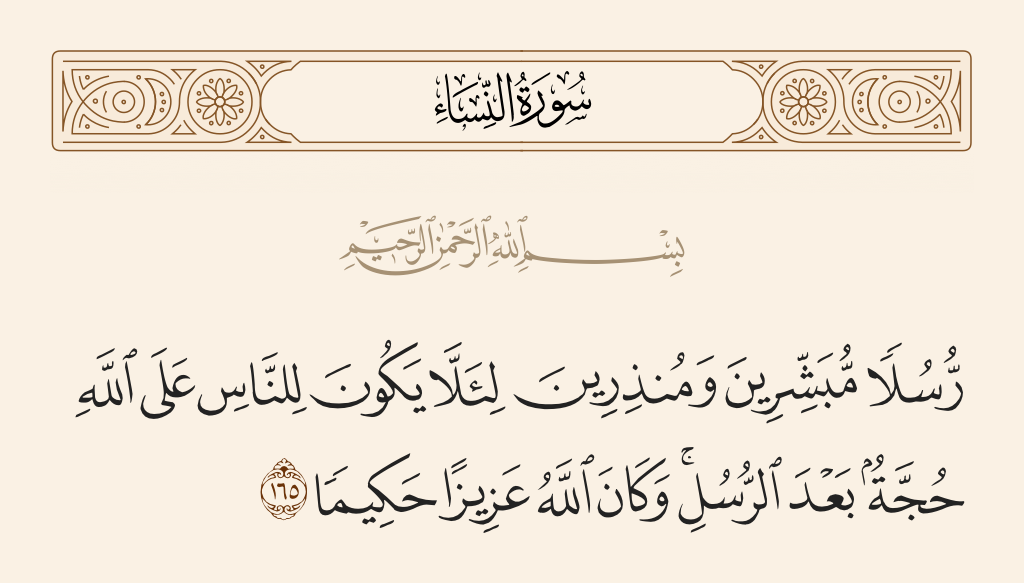 سُورَةُ النِّسَاءِ
بِسْمِ ٱللَّهِ ٱلرَّحْمَٰنِ ٱلرَّحِيمِ
رُّسُلًا مُّبَشِّرِينَ وَمُنذِرِينَ لِئَلَّا يَكُونَ لِلنَّاسِ عَلَى ٱللَّهِ
حُجَّةٌۢ بَعْدَ ٱلرُّسُلِ ۚ وَكَانَ ٱللَّهُ عَزِيزًا حَكِيمًا ١٦٥